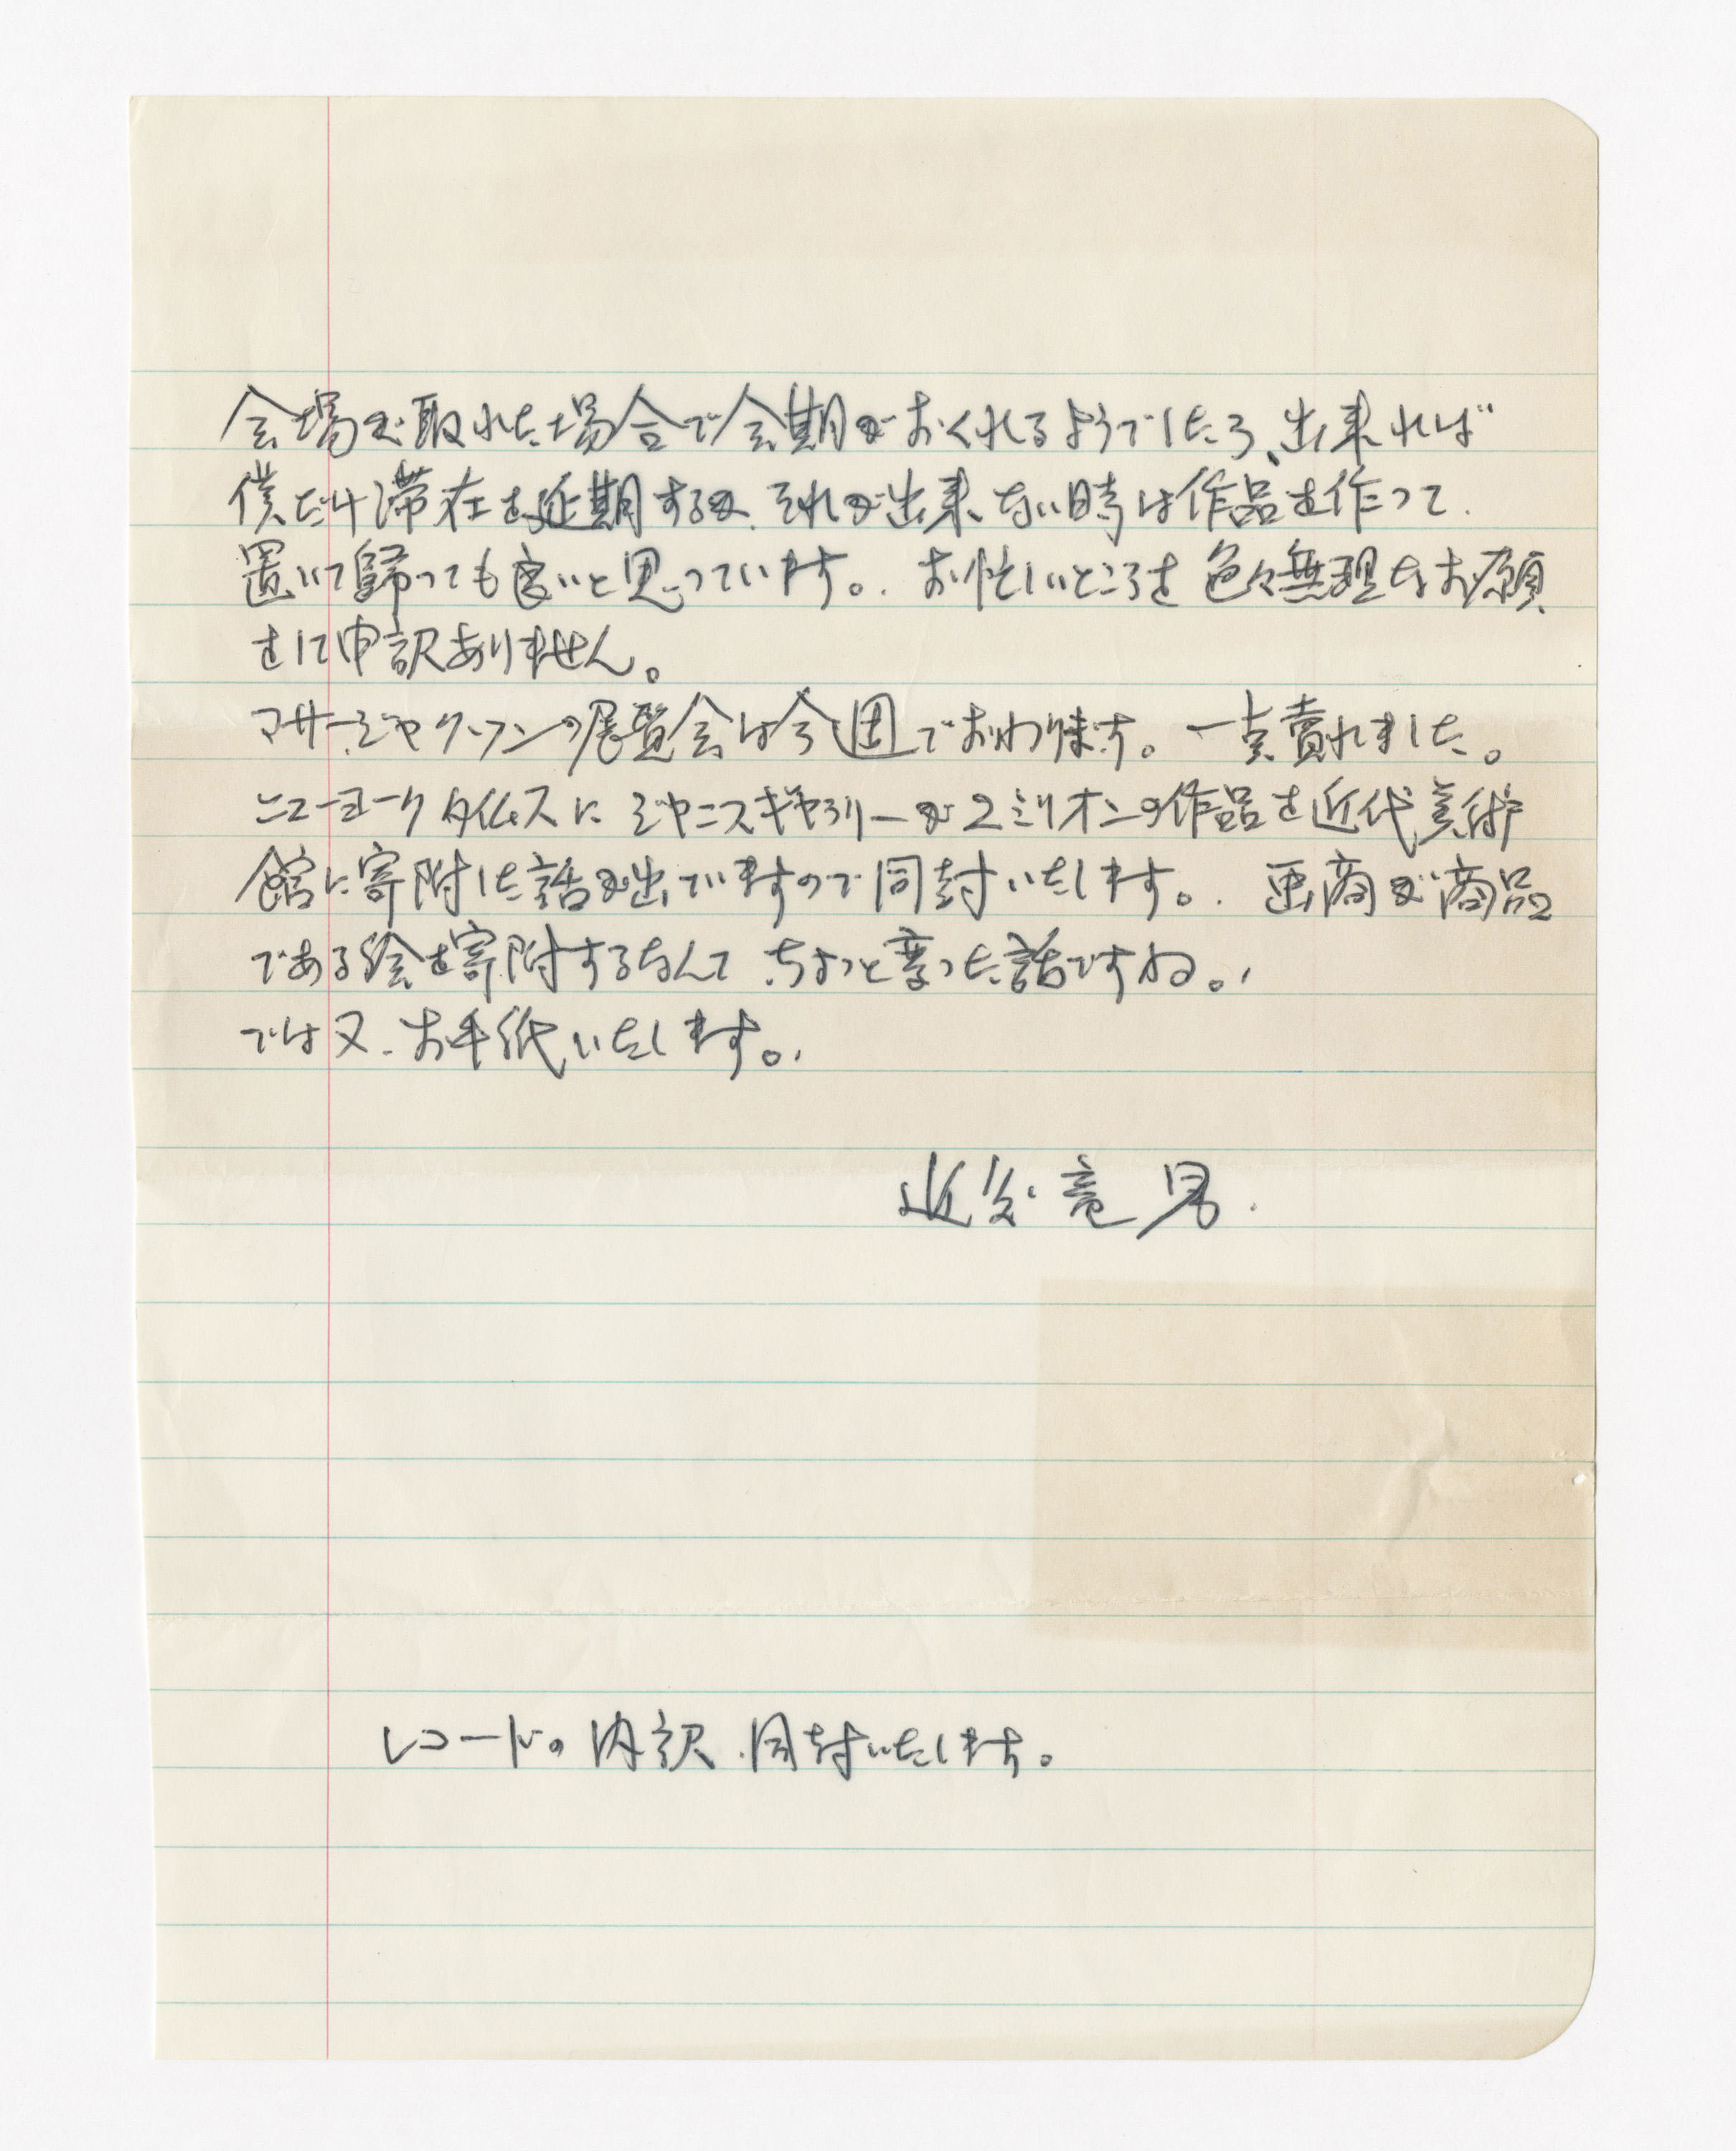 会場が取れた場合で会期がおくれるようでしたら、出来れば
僕だけ滞在を延期するか、それが出来ない時は作品を作って
置いて帰っても良いと思っています。お忙しいところを色々無理なお願
をして申訳ありません。
マサージャクソンの展覧会は今週でおわります。一点売れました。
ニューヨークタイムスに ジャニスギャラリーが2ミリオンの作品を近代美術
館に寄附した話が出ていますので同封いたします。画商が商品
である絵を寄附するなんて、ちょっと変った話ですね。
では又、お手紙いたします。
近藤竜男.
レコードの内訳、同封いたします。